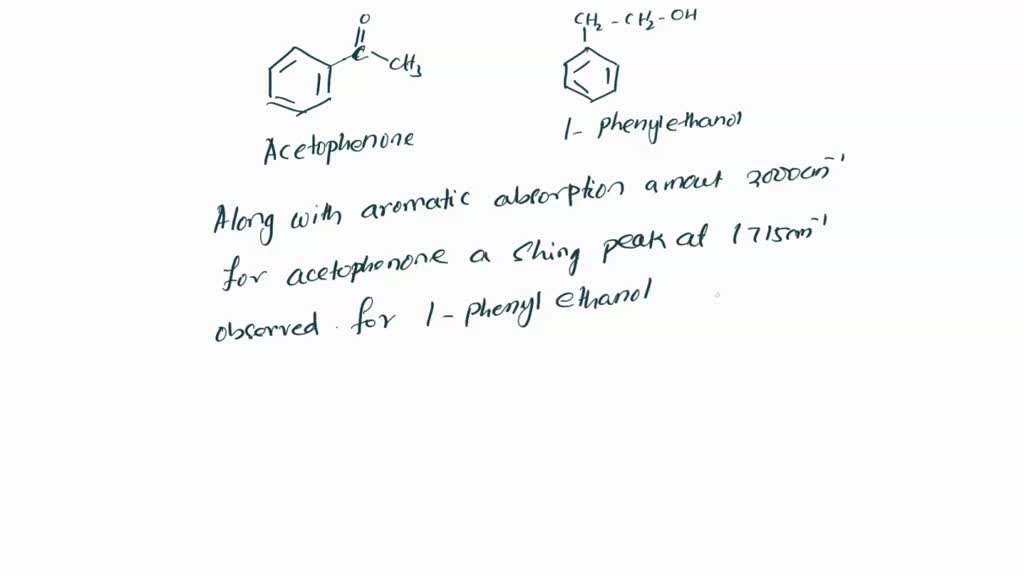 O
C
CH3
CH2 - CH2 - OH
Acetophenone
1- phenylethanol
Along with aromatic absorption amout 3000cm-1
for acetophenone a shing peak at 1715cm-1
observed. for 1-phenyl ethanol